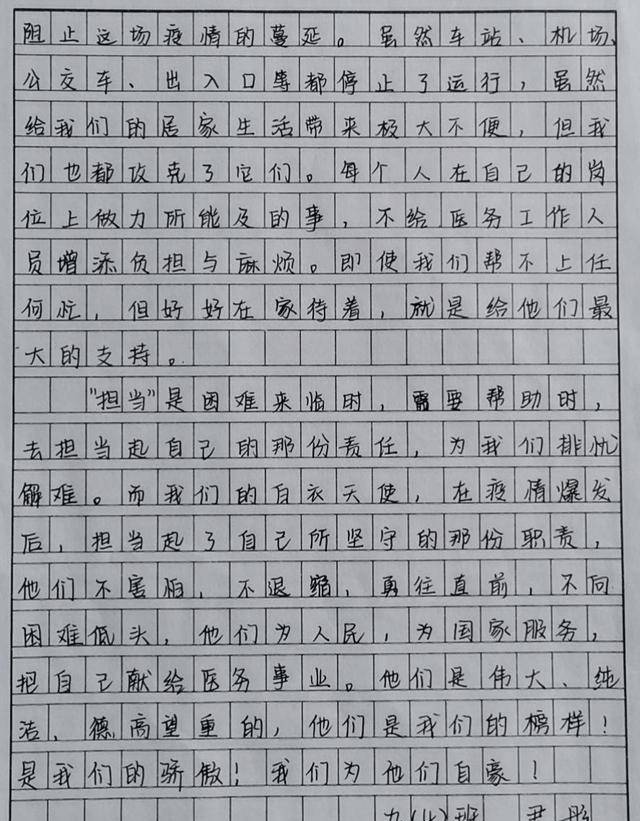 阻止这场疫情的蔓延。虽然车站、机场、
公交车、出入口等都停止了运行，虽然
给我们的居家生活带来极大不便，但我
们也都攻克了它们。每个人在自己的岗
位上做力所能及的事，不给医务工作人
员增添负担与麻烦。即使我们帮不上任
何忙，但好好在家待着，就是给他们最
大的支持。
"担当"是困难来临时，需要帮助时，
去担当起自己的那份责任，为我们排忧
解难。而我们的白衣天使，在疫情爆发
后，担当起了自己所坚守的那份职责，
他们不害怕，不退缩，勇往直前，不向
困难低头，他们为人民，为国家服务，
把自己献给医务事业。他们是伟大、纯
洁、德高望重的，他们是我们的榜样！
是我们的骄傲！我们为他们自豪！
班 尹彤